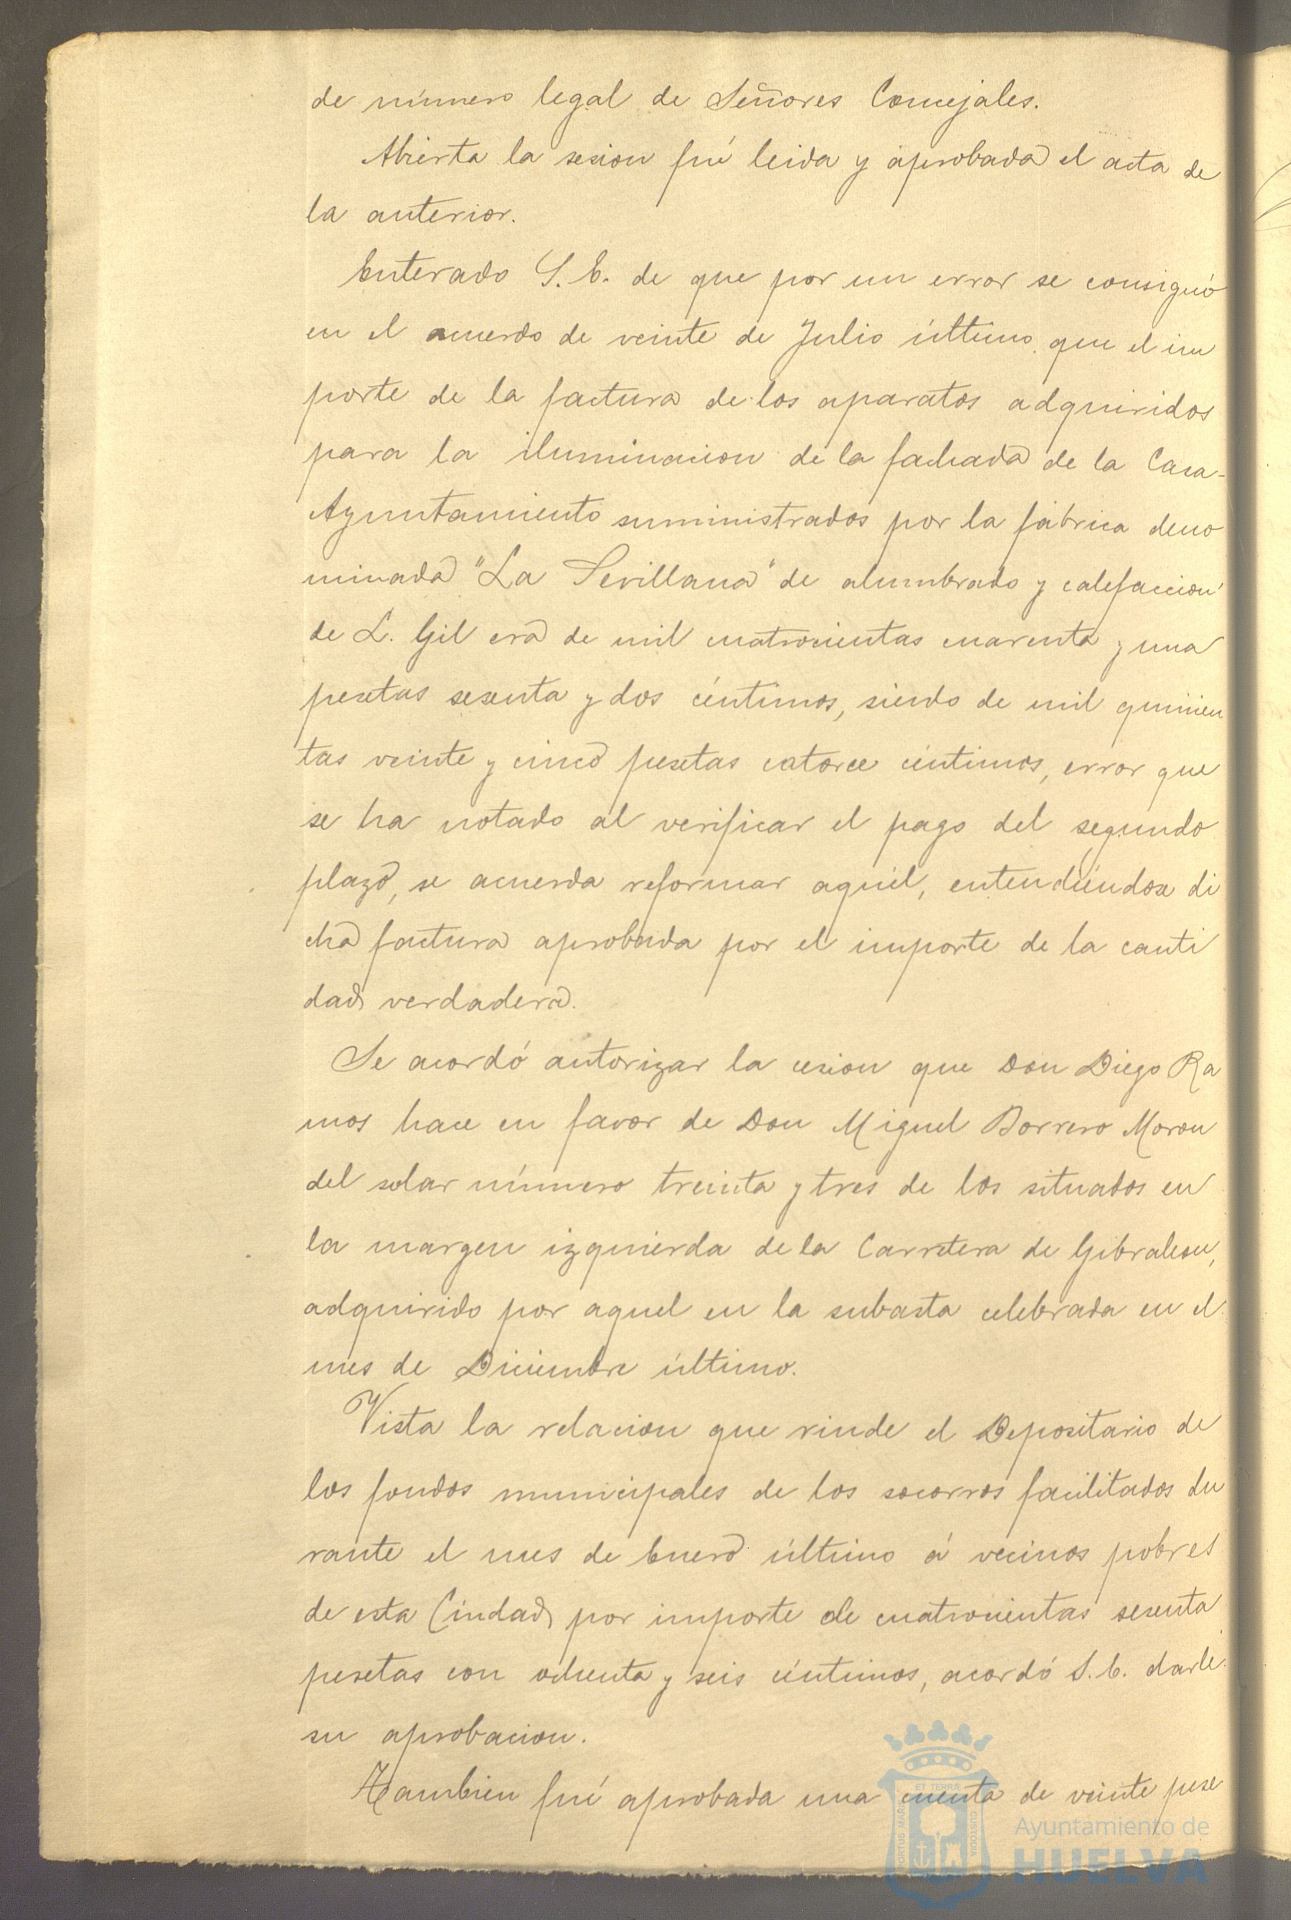 de número legal de Señores Concejales.
Abierta la sesion fué leida y aprobada el acta de
la anterior.
Enterado S. E. de que por un error se consignó
en el acuerdo de veinte de Julio último que el im
porte de la factura de los aparatos adquiridos
para la iluminacion de la fachada de la Casa-
Ayuntamiento suministrados por la fábrica deno
minada "La Sevillana" de alumbrado y calefaccion
de L. Gil era de mil cuatrocientas cuarenta y una
pesetas sesenta y dos céntimos, siendo de mil quinien
tas veinte y cinco pesetas catorce céntimos, error que
se ha notado al verificar el pago del segundo
plazo, se acuerda reformar aquél, entendiéndose di
cha factura aprobada por el importe de la canti
dad verdadera.
Se acordó autorizar la cesion que Don Diego Ra
mos hace en favor de Don Miguel Borrero Moron
del solar número treinta y tres de los situados en
la margen izquierda de la Carretera de Gibraleon,
adquirido por aquel en la subasta celebrada en el
mes de Diciembre último.
Vista la relacion que rinde el Depositario de
los fondos municipales de los socorros facilitados du
rante el mes de Enero último á vecinos pobres
de esta Ciudad por importe de cuatrocientas sesenta
pesetas con ochenta y seis céntimos, acordó S. E. darle
su aprobacion.
Tambien fué aprobada una cuenta de veinte pese
ET TERRÆ
PORTUS MARIS
CUSTODIA
Ayuntamiento de
HUELVA